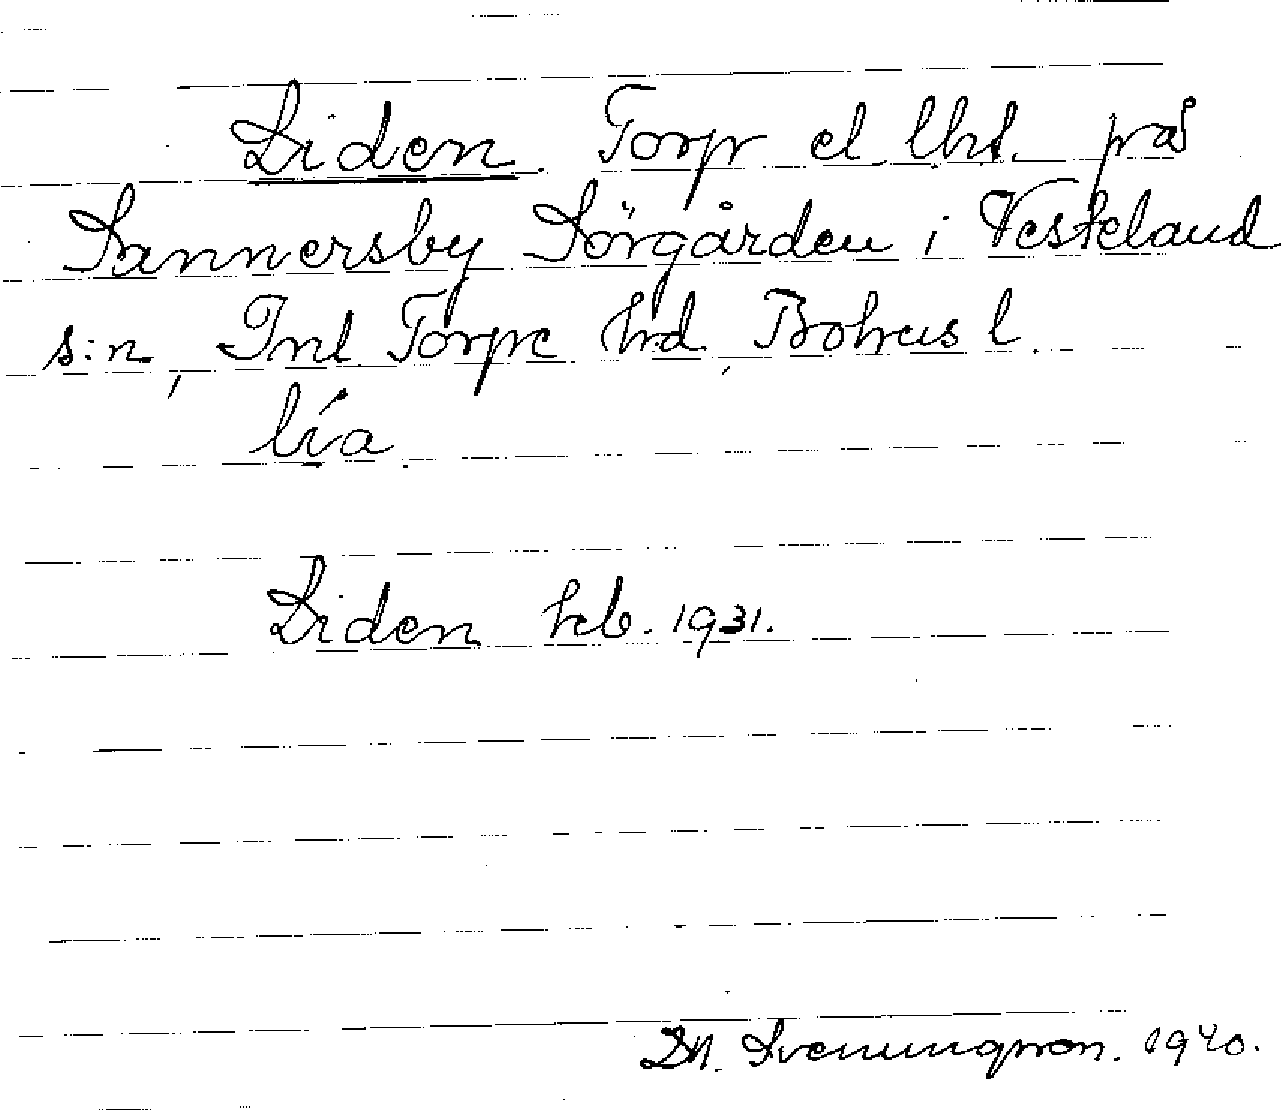 Liden Torp el. lht. på
Sannersby Sörgården i Vesteland
s:n, Inl Torpe hrd, Bohus l.
lía
Liden hcb. 1931.
Sveningson. 1940.